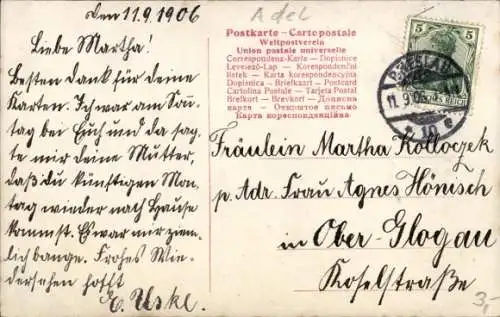 den 11.9.1906
Liebe Martha!
Besten Dank für deine
Karten. Ich war am Sonn-
tag bei Euch und da sag-
te mir deine Mutter,
daß du künftigen Mon-
tag wieder nach Hause
kommst. Es war mir ziem-
lich bange. Frohes Wie-
dersehen hofft
E. Uske.
Adel
Postkarte – Carte postale
Weltpostverein
Union postale universelle
Correspondenz-Karte – Dopisnice
Levelező-Lap – Korespondenční
lístek – Karta korespondencyjna
Dopisnica – Briefkaart – Postcard
Cartolina Postale – Tarjeta Postal
Brefkort – Brevkort – Дописна
карта – Открытое письмо
Карта кореспонденцiйна
5 5
REICH
BRESLAU
11.9.06
10
Fräulein Martha Kolloczek
p. Adr. Frau Agnes Hönisch
in Ober-Glogau
Koselstraße
3,